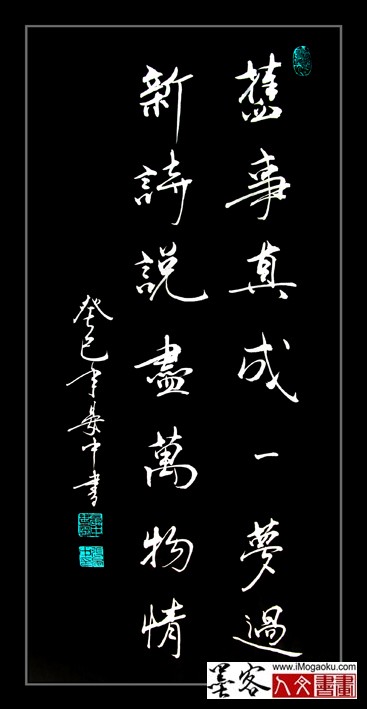 舊事真成一夢過
新詩說盡萬物情
癸巳年晏中書
www.iMogaoku.com
墨客人文書畫